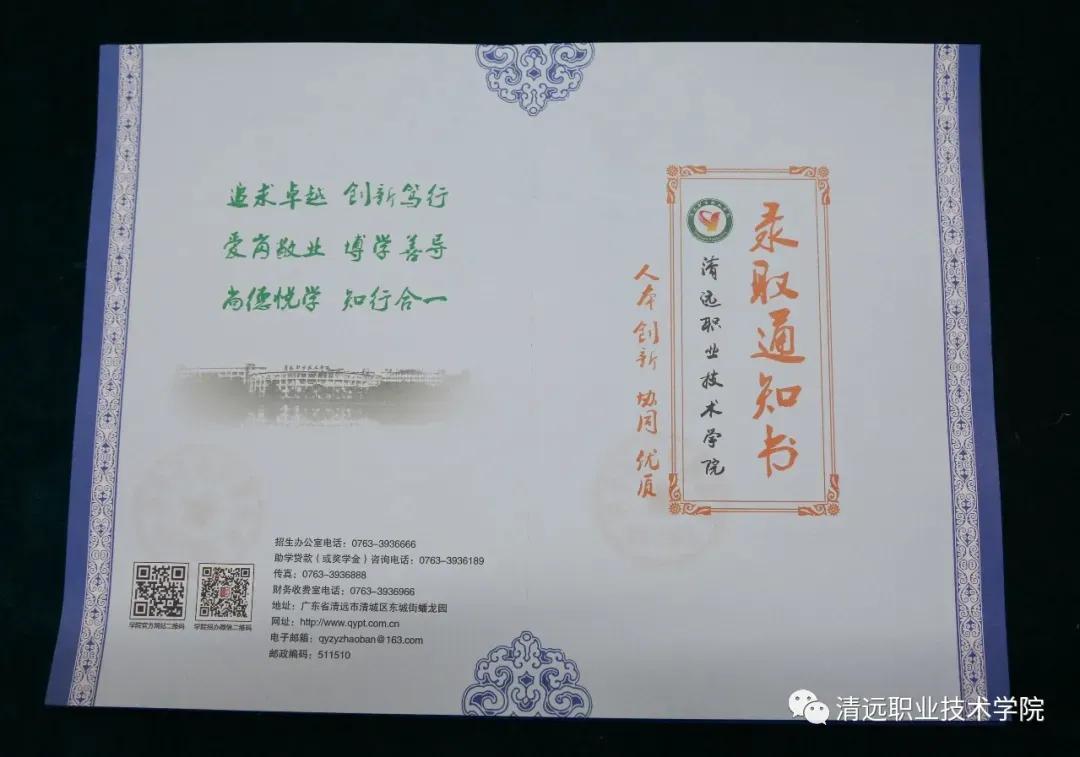 追求卓越 创新笃行
爱岗敬业 博学善导
尚德悦学 知行合一
招生办公室电话：0763-3936666
助学贷款（或奖学金）咨询电话：0763-3936189
传真：0763-3936888
财务收费室电话：0763-3936966
地址：广东省清远市清城区东城街蟠龙园
网址：http://www.qypt.com.cn
电子邮箱：qyzyzhaoban@163.com
邮政编码：511510
学院官方网站二维码
学院招办微信二维码
录取通知书
清远职业技术学院
人本 创新 协同 优质
清远职业技术学院